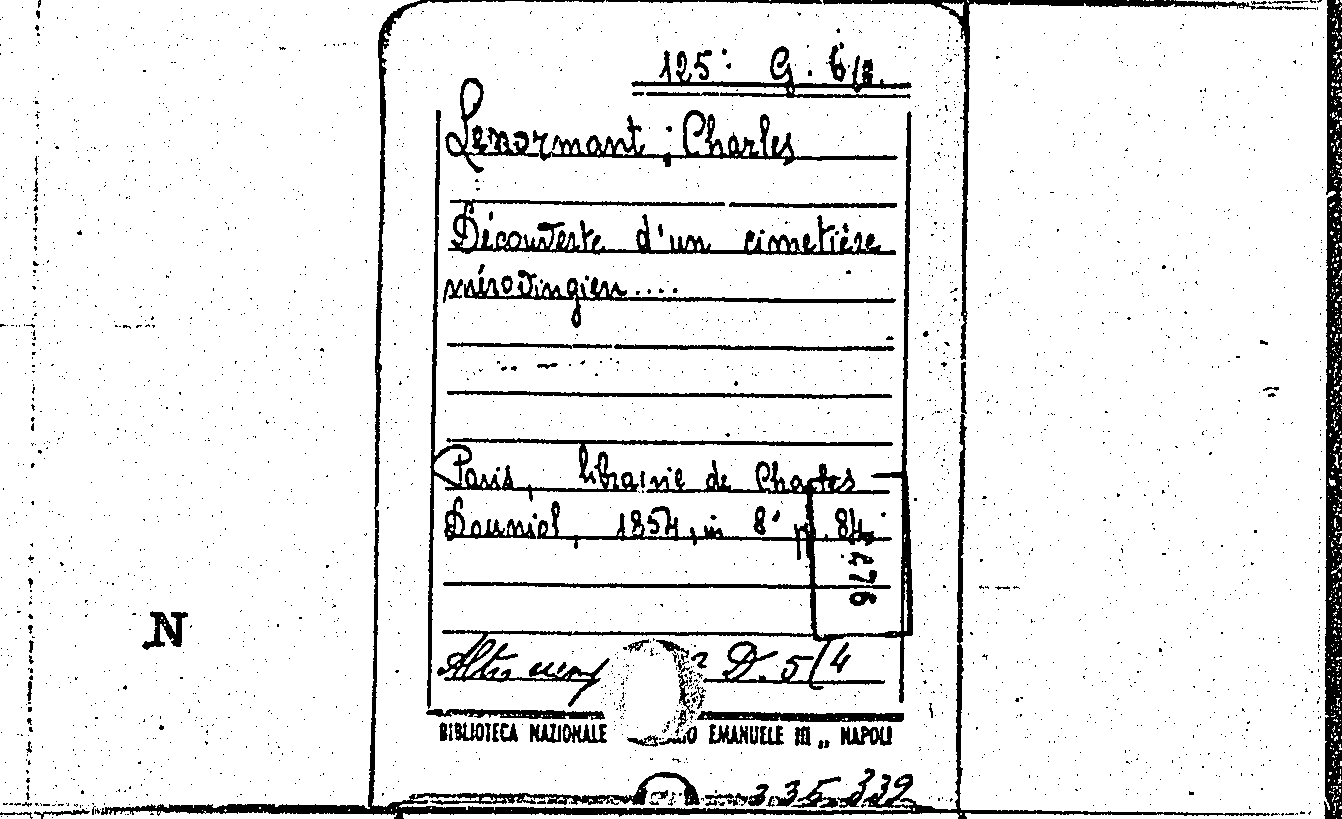 125. G.
Lenormant, Charles
Découverte d'un cimetière
mérovingien....
Paris, librairie de Charles
Douniol, 1854, in 8° p. 84.
476
Altro D. 5/4
N
BIBLIOTECA NAZIONALE EMANUELE III „ NAPOLI
335339